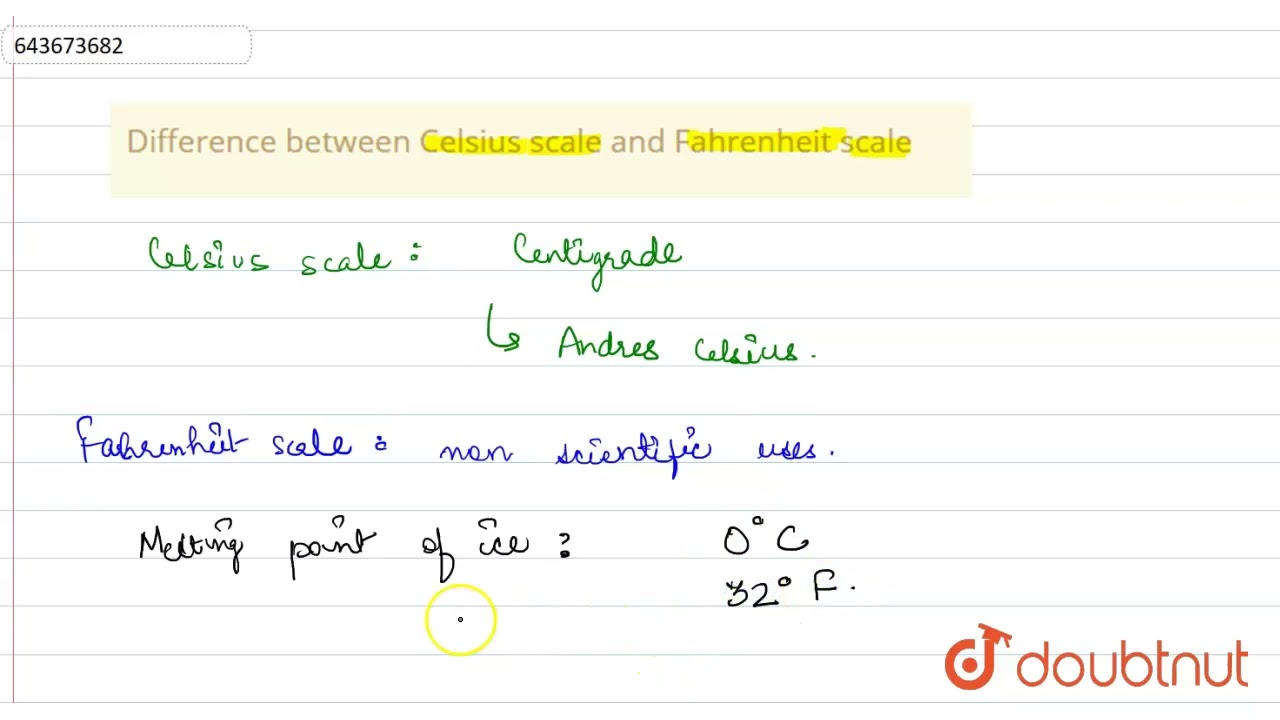 643673682
Difference between Celsius scale and Fahrenheit scale
Celsius scale : Centigrade
↳ Andres Celsius.
Fahrenheit scale : non scientific uses.
Melting point of ice : 0° C
32° F.
doubtnut